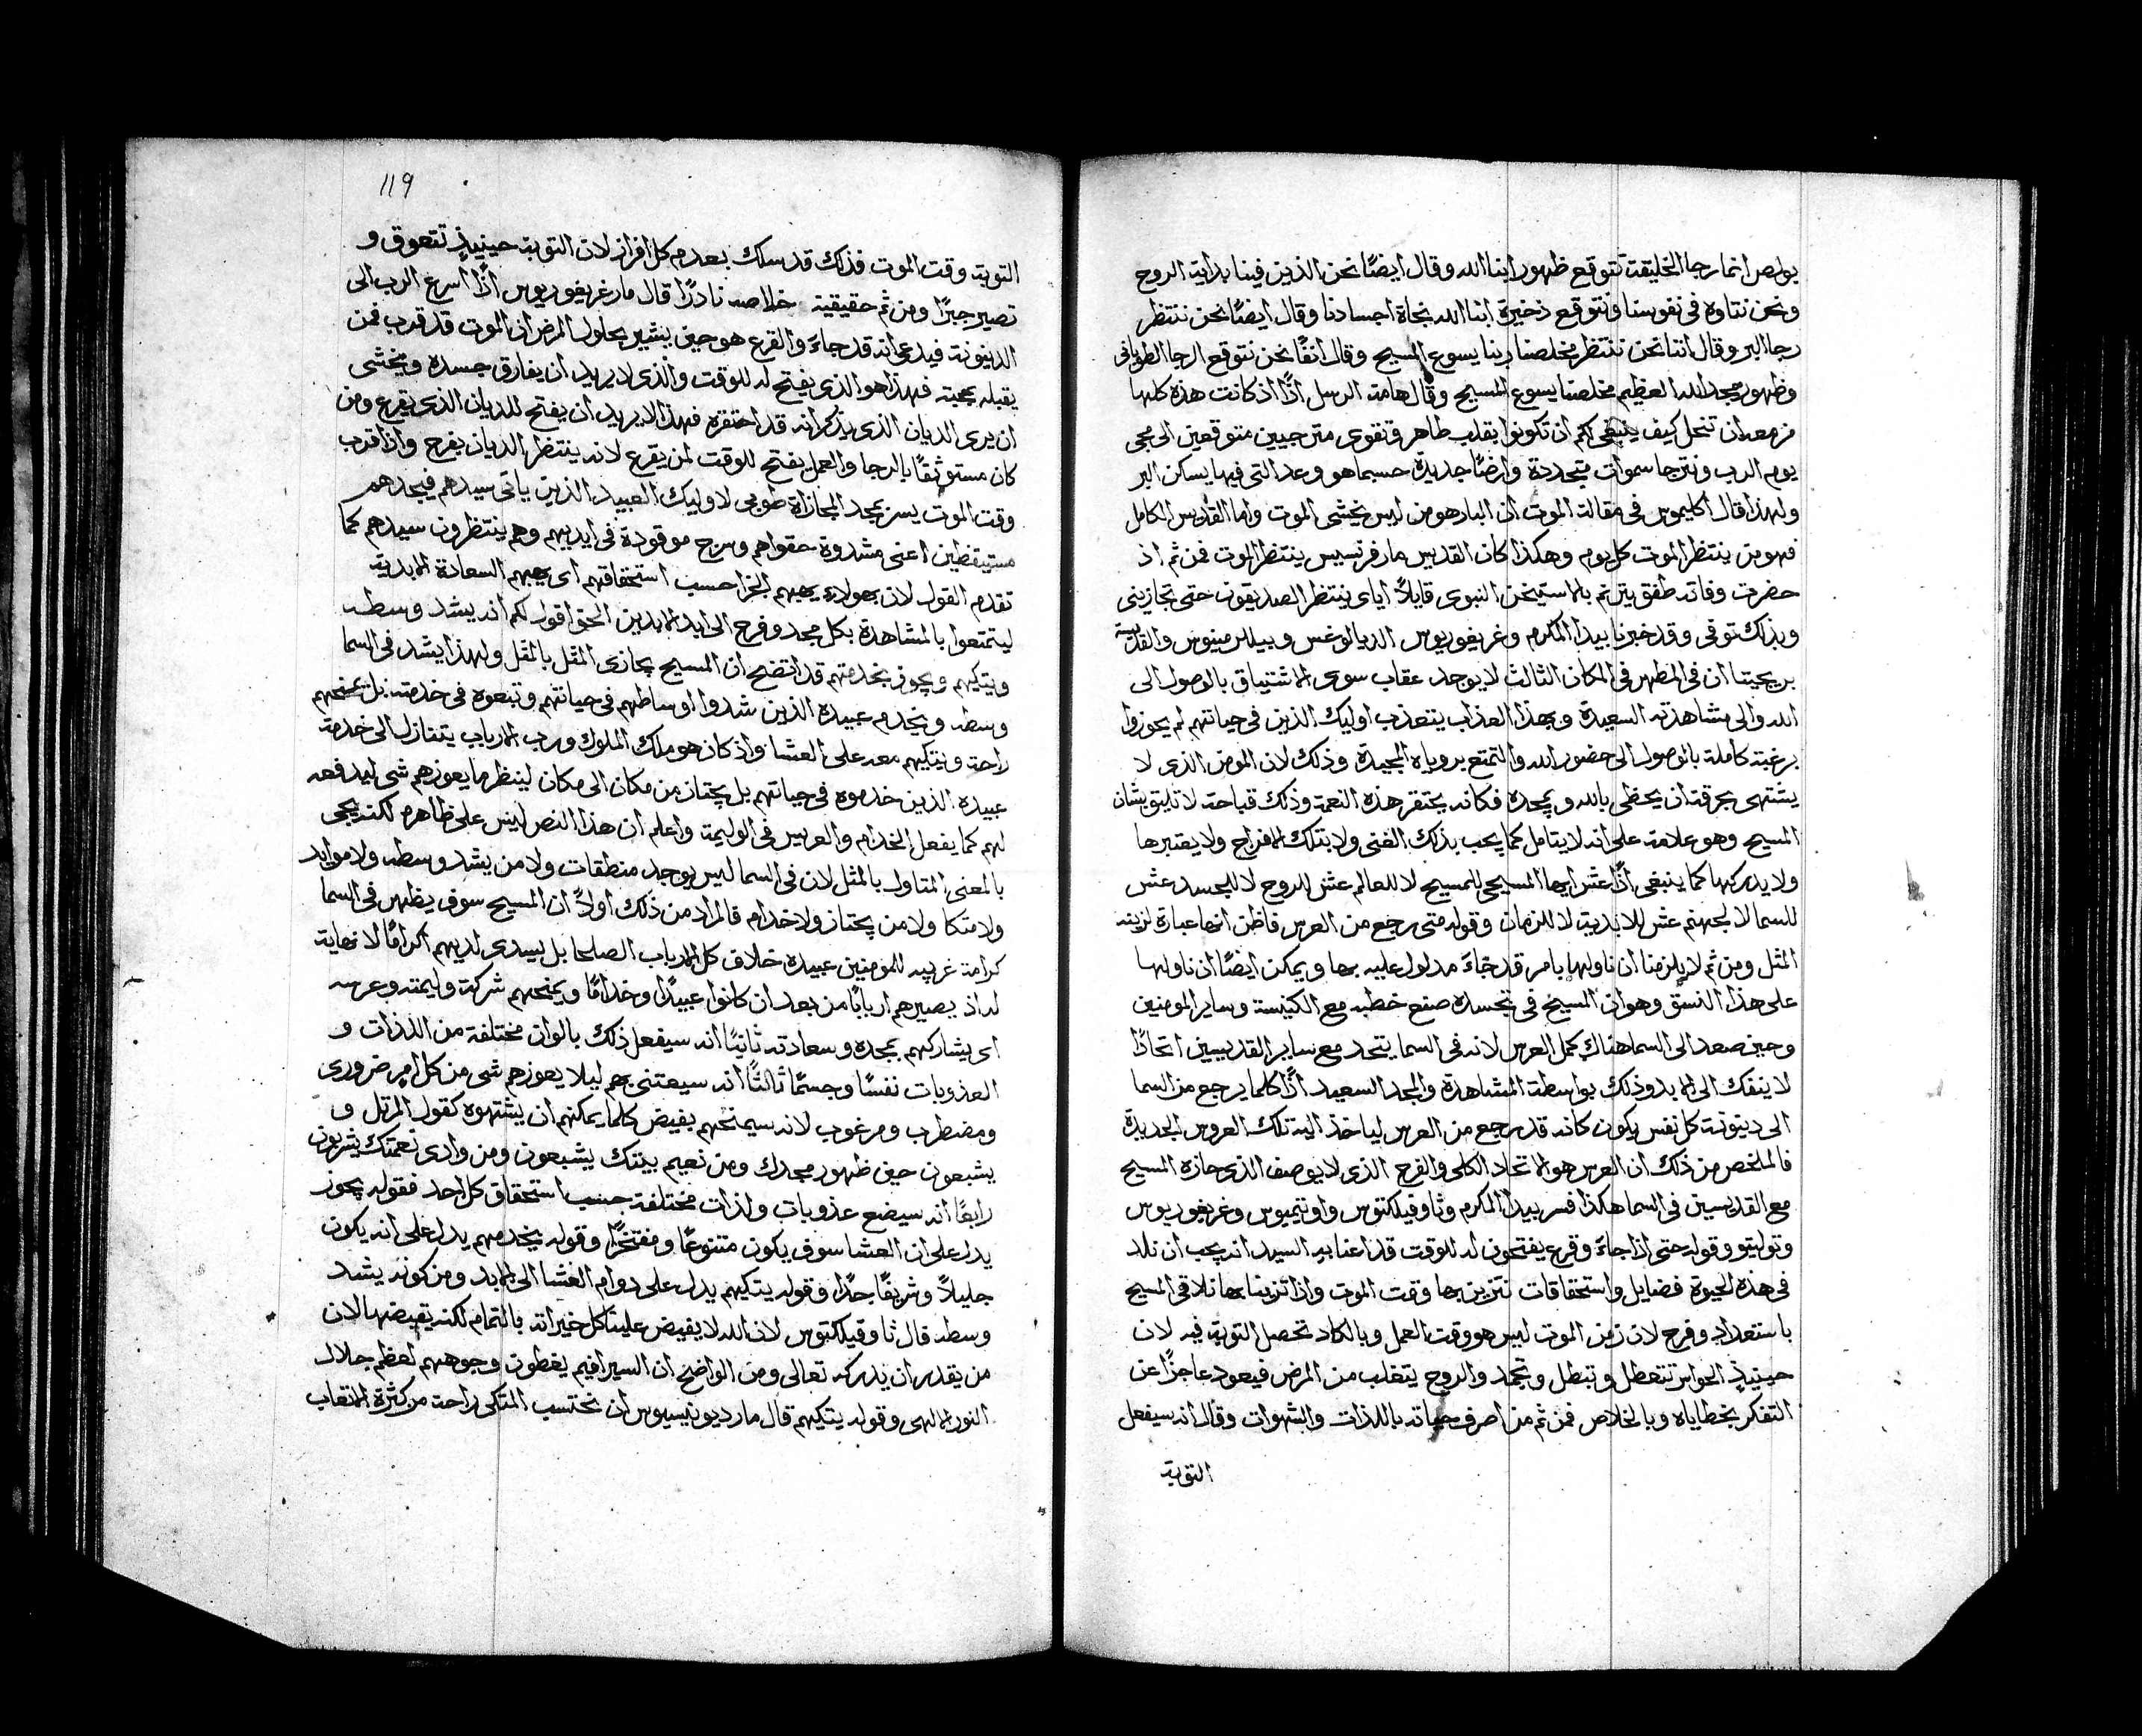 بولص انما رجا الخليقة تتوقع ظهور ابنا الله وقال ايضًا نحن الذين فينا بداية الروح
ونحن نتاوه في نفوسنا ونتوقع ذخيرة ابنا الله نجاة اجسادنا وقال ايضًا نحن ننتظر
رجا البر وقال اننا نحن ننتظر مخلصنا ربنا يسوع المسيح وقال انفًا نحن نتوقع الرجا الطوباني
وظهور مجد الله العظيم مخلصنا يسوع المسيح وقال هامة الرسل اذًا اذ كانت هذه كلها
مزمعه ان تنحل كيف ينبغي لكم ان تكونوا بقلب طاهر وتقوى مترجيين متوقعين الى مجي
يوم الرب ونترجا سموات متجددة وارضًا جديدة حسبما هو وعد التي فيها يسكن البر
ولهذا قال اكليموس في مقالة الموت ان البار هو من ليس يخشى الموت واما القديس الكامل
فهو من ينتظر الموت كل يوم وهكذا كان القديس مار فرنسيس ينتظر الموت فمن ثم اذ
حضرت وفاته طفق يترنم بالاستيخن النبوى قايلاً اياى ينتظر الصديقون حتى تجازيني
وبذلك توفي وقد خبرنا بيدا المكرم وغريغوريوس الديالوغس وبيللرمينوس والقديسة
بريجيتا ان في المطهر في المكان الثالث لا يوجد عقاب سوى الاشتياق بالوصول الى
الله والى مشاهدته السعيدة وبهذا العذاب يتعذب اوليك الذين في حياتهم لم يحوزوا
برغبة كاملة بالوصول الى حضور الله والتمتع بروياه المجيدة وذلك لان المومن الذى لا
يشتهى بحرقة ان يحظى بالله وبمجده فكانه يحتقر هذه النعمة وذلك قباحة لا تليق بشان
المسيح وهو علامة على انه لا يتامل كما يجب بذلك الغنى ولا بتلك الافراح ولا يعتبرها
ولا يدركها كما ينبغي اذًا عش ايها المسيحي للمسيح لا للعالم عش للروح لا للجسد عش
للسما لا لجهنم عش للابدية لا للزمان وقوله متى رجع من العرس فاظن انها عبارة لزينه
المثل ومن ثم لا يلزمنا ان ناولها بامر قد جاءَ مدلول عليه بها ويمكن ايضًا ان ناولها
على هذا النسق وهو ان المسيح في تجسده صنع خطبه مع الكنيسة وساير المومنين
وحين صعد الى السما هناك كمل العرس لانه في السما يتحد مع ساير القديسين اتحادًا
لا ينفك الى الابد وذلك بواسطة المشاهدة والمجد السعيد اذًا كلما يرجع من السما
الى دينونة كل نفس يكون كانه قد رجع من العرس لياخذ اليه تلك العروس الجديدة
فالملخص من ذلك ان العرس هو الاتحاد الكلى والفرح الذى لا يوصف الذى حازه المسيح
مع القديسين في السما هكذا فسر بيدا المكرم وثاوفيلكتوس واوتيميوس وغريغوريوس
وتوليتو وقوله حتى اذا جاءَ وقرع يفتحون له للوقت قد اعنا به السيد انه يجب ان نلد
في هذه الحيوة فضايل واستحقاقات نتزين بها وقت الموت واذا تزينا بها نلاقي المسيح
باستعداد وفرح لان زمن الموت ليس هو وقت العمل وبالكاد تحصل التوبة فيه لان
حينيذٍ الحواس تتعطل وتبطل وتجمد والروح يتغلب من المرض فيعود عاجزًا عن
التفكر بخطاياه وبالخلاص فمن ثم من اصرف حياته باللذات والشهوات وقال انه سيفعل
التوبة
119
التوبة وقت الموت فذلك قد سلك بعدم كل افراز لان التوبة حينيذٍ تتعوق و
تصير جبرًا ومن ثم حقيقية خلاصه نادرًا قال مار غريغوريوس اذًا اسرع الرب الى
الدينونة فيدعى انه قد جاءَ والقرع هو حين يشير بحلول المرض ان الموت قد قرب فمن
يقبله بمحبة فهذا هو الذى يفتح له للوقت والذى لا يريد ان يفارق جسده ويخشى
ان يرى الديان الذى يذكر انه قد احتقره فهذا لا يريد ان يفتح للديان الذى يقرع ومن
كان مستوثقًا بالرجا والعمل يفتح للوقت لمن يقرع لانه ينتظر الديان بفرح واذا قرب
وقت الموت يسر بمجد المجازاة طوبى لاوليك العبيد الذين ياتى سيدهم فيجدهم
مستيقظين اعنى مشدوة حقواهم وسرج موقودة في ايديهم وهم ينتظرون سيدهم كما
تقدم القول لان بهولاء يهبهم الجزا حسب استحقاقهم اى يهبهم السعادة الابدية
ليتمتعوا بالمشاهدة بكل مجد وفرح الى ابد الابدين الحق اقول لكم انه يشد وسطه
ويتكيهم ويجوز بخدمتهم قد اتضح ان المسيح يجازى المثل بالمثل ولهذا يشد في السما
وسطه ويخدم عبيده الذين شدوا اوساطهم في حياتهم وتبعوه في خدمته بل يمنحهم
راحة ويتكيهم معه على العشا واذ كان هو ملك الملوك ورب الارباب يتنازل الى خدمة
عبيده الذين خدموه في حياتهم بل يجتاز من مكان الى مكان لينظر ما يعوزهم شى ليدفعه
لهم كما يفعل الخدام والعريس في الوليمة واعلم ان هذا النص ليس على ظاهره لكنه يجى
بالمعنى المتاول بالمثل لان في السما ليس يوجد منطقات ولا من يشد وسطه ولا موايد
ولا متكا ولا من يجتاز ولا خدام فالمراد من ذلك اولاً ان المسيح سوف يظهر في السما
كرامة غريبه للمومنين عبيده خلاف كل الارباب الصلحا بل يسدى لديهم اكرامًا لا نهاية
له اذ يصيرهم اربابًا من بعد ان كانوا عبيدًا وخدامًا ويمنحهم شركة وليمته وعرسه
اى يشاركهم بمجده وسعادته ثانيًا انه سيفعل ذلك بالوان مختلفة من اللذات و
العذوبات نفسًا وجسمًا ثالثًا انه سيعتنى بهم ليلا يعوزهم شى من كل امر ضرورى
ومضطرب ومرغوب لانه سيمنحهم بفيض كلما يمكنهم ان يشتهوه كقول المرتل و
يشبعون حين ظهور مجدك ومن نعيم بيتك يشبعون ومن وادى نعمتك يشربون
رابعًا انه سيضع عذوبات ولذات مختلفة حسب استحقاق كل احد فقوله يجوز
يدل على ان العشا سوف يكون متنوعًا ومفتخرًا وقوله يخدمهم يدل على انه يكون
جليلاً وشريفًا جدًا وقوله يتكيهم يدل على دوام العشا الى الابد ومن كونه يشد
وسطه قال ثاوفيلكتوس لان الله لا يفيض علينا كل خيراته بالتمام لكنه يقبضها لان
من يقدر ان يدركه تعالى ومن الواضح ان السيرافيم يغطون وجوههم لعظم جلال
النور الالهى وقوله يتكيهم قال مار ديونيسيوس ان نحتسب المتكى راحة من كثرة الاتعاب